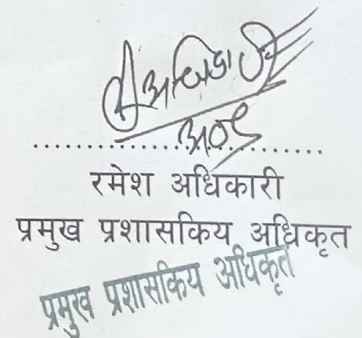 रमेश अधिकारी
प्रमुख प्रशासकिय अधिकृत
प्रमुख प्रशासकिय अधिकृत